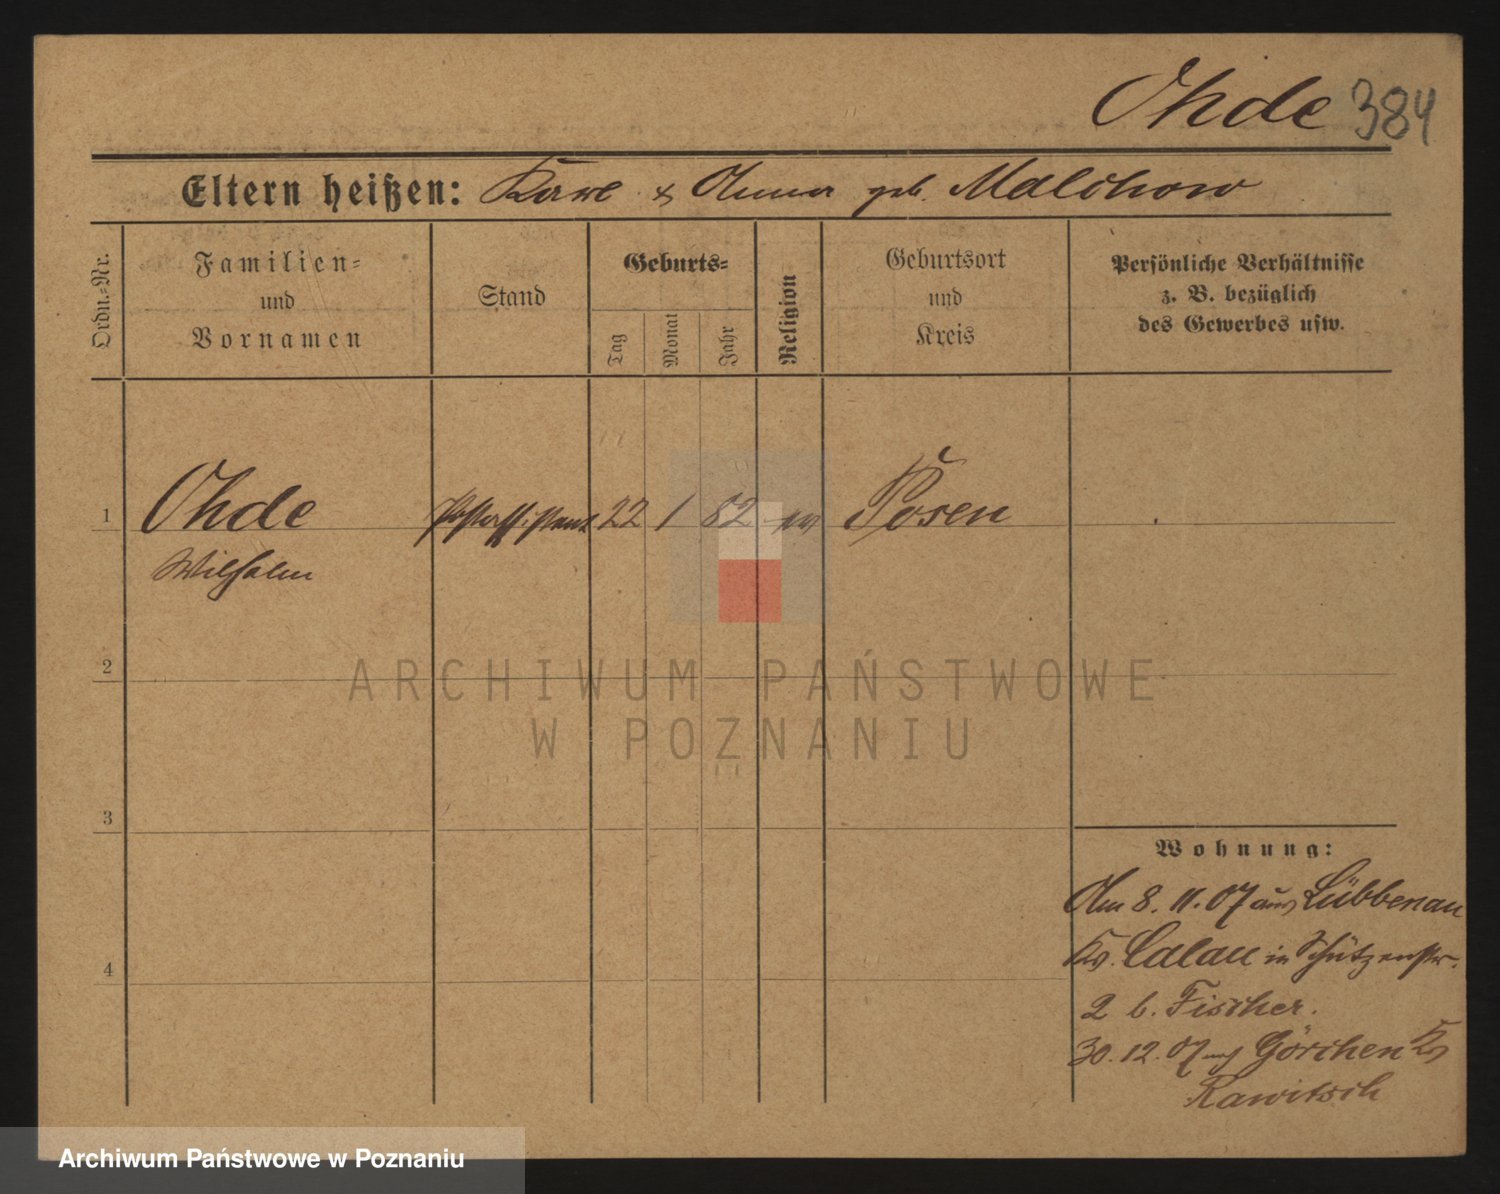 Ohde 384
Eltern heißen: Karl & Anna geb. Malchow
Ordn.-Nr.
Familien-
und
Vornamen
Stand
Geburts-
Tag
Monat
Jahr
Religion
Geburtsort
und
Kreis
Persönliche Verhältnisse
z. B. bezüglich
des Gewerbes usw.
1 Ohde Postassistent 22 1 82 ev Posen
Wilhelm
2
ARCHIWUM PAŃSTWOWE
W POZNANIU
3
Wohnung:
Am 8. 11. 07 aus Lübbenau
Kr. Calau in Schützenstr.
4
2 b. Fischer.
30. 12. 07 nach Görchen Kr
Rawitsch
Archiwum Państwowe w Poznaniu